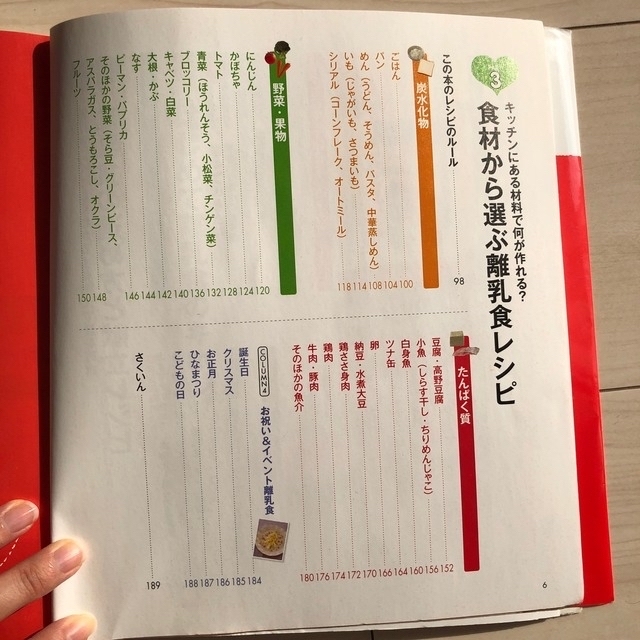 3
キッチンにある材料で何が作れる?
食材から選ぶ離乳食レシピ
この本のレシピのルール 98
炭水化物
ごはん 100
パン 104
めん（うどん、そうめん、パスタ、中華蒸しめん） 108
いも（じゃがいも、さつまいも） 114
シリアル（コーンフレーク、オートミール） 118
野菜・果物
にんじん 120
かぼちゃ 124
トマト 128
青菜（ほうれんそう、小松菜、チンゲン菜） 132
ブロッコリー 136
キャベツ・白菜 140
大根・かぶ 142
なす 144
ピーマン・パプリカ 146
そのほかの野菜（そら豆・グリーンピース、
アスパラガス、とうもろこし、オクラ） 148
フルーツ 150
たんぱく質
豆腐・高野豆腐 152
小魚（しらす干し・ちりめんじゃこ） 156
白身魚 160
ツナ缶 164
卵 166
納豆・水煮大豆 170
鶏ささ身肉 172
鶏肉 174
牛肉・豚肉 176
そのほかの魚介 180
COLUMN 4
お祝い&イベント離乳食
誕生日 184
クリスマス 185
お正月 186
ひなまつり 187
こどもの日 188
さくいん 189
6